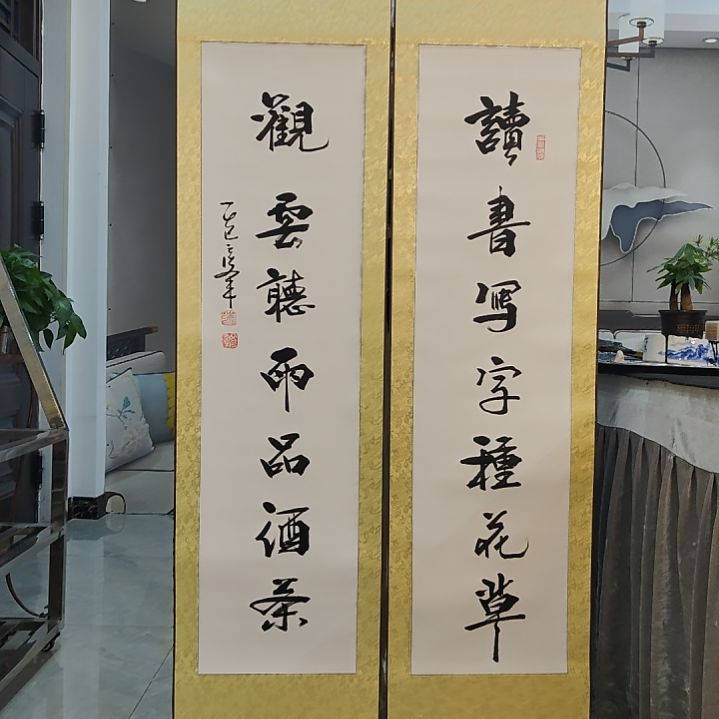 讀書寫字種花草
觀雲聽雨品酒茶
乙巳